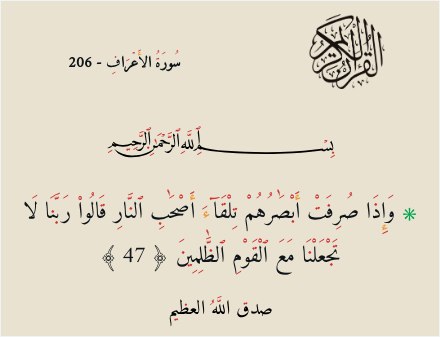 القرآن الكريم
سُورَةُ الأَعْرَافِ - 206
بِسْمِ ٱللَّهِ ٱلرَّحْمَٰنِ ٱلرَّحِيمِ
❋ وَإِذَا صُرِفَتْ أَبْصَٰرُهُمْ تِلْقَآءَ أَصْحَٰبِ ٱلنَّارِ قَالُوا۟ رَبَّنَا لَا
تَجْعَلْنَا مَعَ ٱلْقَوْمِ ٱلظَّٰلِمِينَ ﴿ 47 ﴾
صدق اللَّهُ العظيم